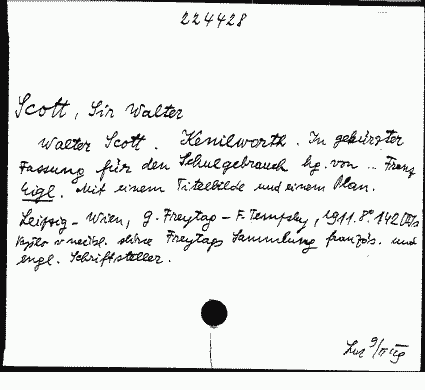 224428
Scott, Sir Walter
Walter Scott. Kenilworth. In gekürzter
Fassung für den Schulgebrauch hg. von .. Franz
Eigl. Mit einem Titelbilde und einem Plan.
Leipzig - Wien, G. Freytag - F. Tempsky, 1911. 8° 142
Freytags Sammlung französ. und
engl. Schriftsteller.